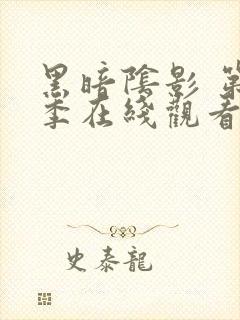 黑暗陰影 第
季在綫觀看
史泰龍